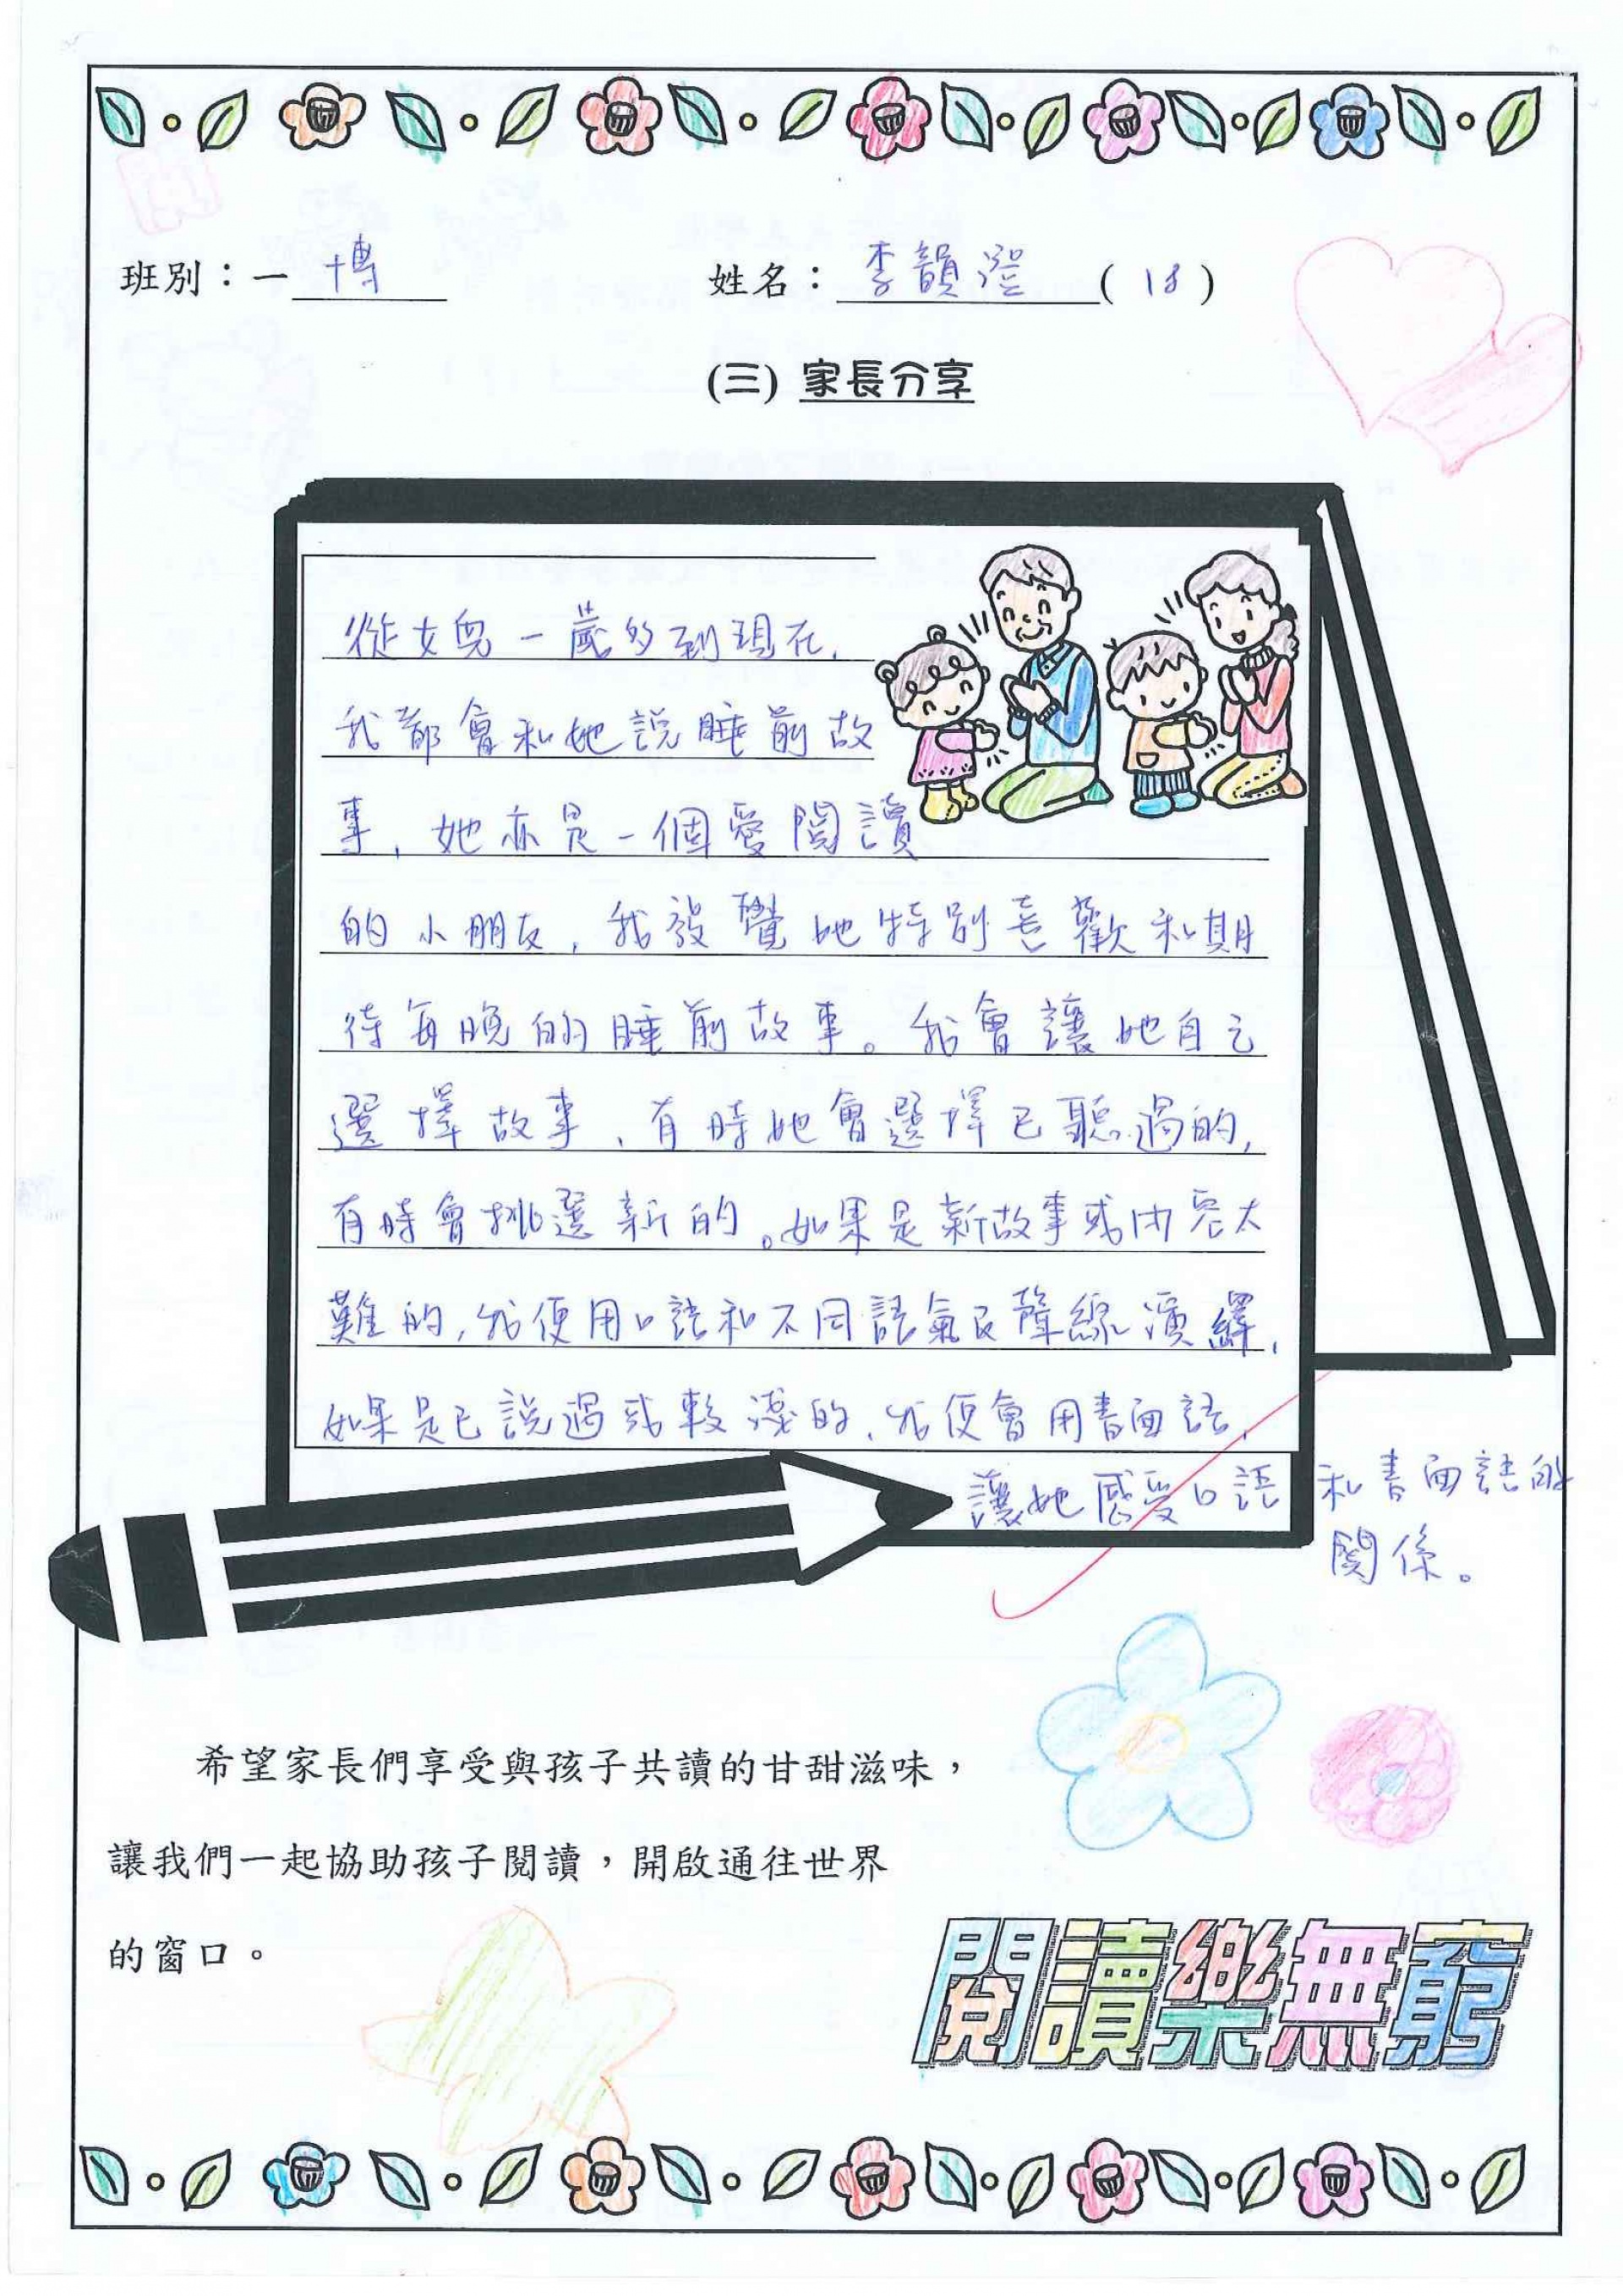 班別：一 博 姓名：李韻澄 ( 18 )
(三) 家長分享
從女兒一歲多到現在,
我都會和她說睡前故
事, 她亦是一個愛閱讀
的小朋友, 我發覺她特別喜歡和期
待每晚的睡前故事。我會讓她自己
選擇故事、有時她會選擇已聽過的,
有時會挑選新的。如果是新故事或內容太
難的, 我便用口語和不同語氣及聲線演繹,
如果是已說過或較淺的、我便會用書面語,
讓她感受口語和書面語的
關係。
希望家長們享受與孩子共讀的甘甜滋味，
讓我們一起協助孩子閱讀，開啟通往世界
的窗口。
閱讀樂無窮